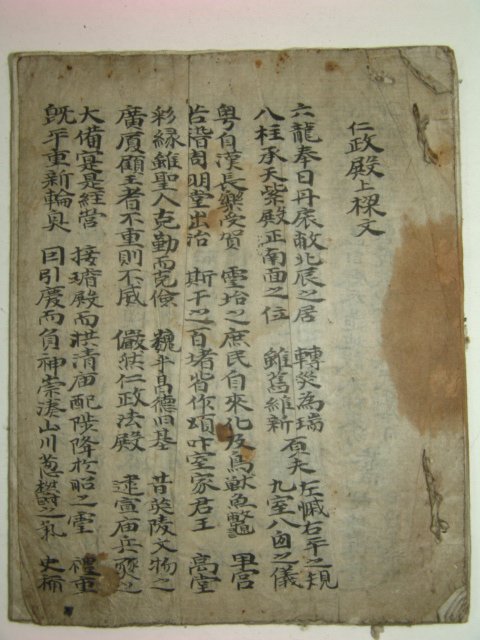 仁政殿上樑文
六龍奉日丹扆敞北辰之居 轉災為瑞 左墄右平之規
八柱承天紫殿正南面之位 雖舊維新 九室八囪之儀
粤自漢長樂受賀 靈坮之庶民自來化及鳥獸魚鼈 卑宮
若稽周明堂出治 斯干之百堵皆作頌叶室家君王 高堂
彩緣雖聖人克勤而克儉 巍乎昌德旧基 昔英陵文物之
廣厦顧王者不重則不威 儼然仁政法殿 逮宣庙兵燹之
大備寔是經営 接璿殿而洪清庙配陟降於昭之靈 禮重
旣平重新輪奐 回引慶而負神崇湊山川葱鬱之氣 史稱